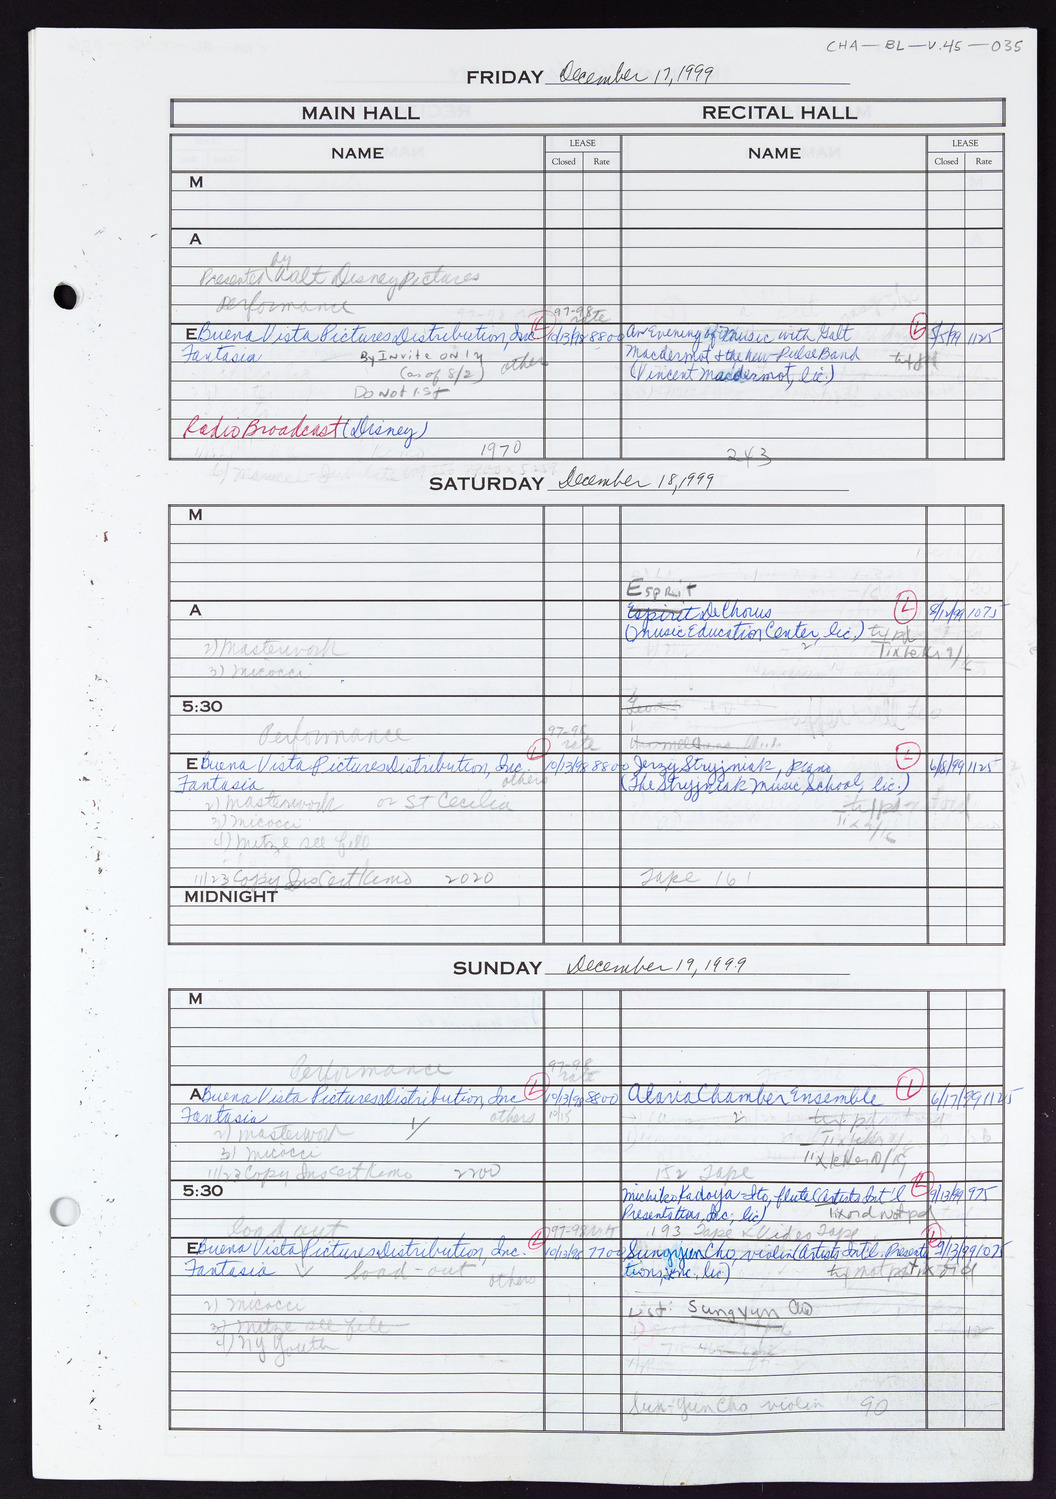 CHA—BL—V.45—035
FRIDAY December 17, 1999
MAIN HALL RECITAL HALL
NAME LEASE Closed Rate NAME LEASE Closed Rate
M
A
by
Presented Walt Disney Pictures
Performance
97-98 rate
E Buena Vista Pictures Distribution, Inc. L 10/13/98 8800 An Evening of Music with Galt L 5/5/99 1125
Fantasia By INvite ONly others MacDermot & the New Pulse Band typd
(as of 8/2) (Vincent Macdermot, lic.)
Do Not List
Radio Broadcast (Disney)
1970 243
SATURDAY December 18, 1999
M
Esprit
A Espirit De Chorus L 8/12/99 1075
(Music Education Center, lic.) typd
2) Masterwork Tix to Krs 9/
3) Micocci
5:30
Performance 97-98 rate
E Buena Vista Pictures Distribution, Inc. L 10/13/98 8800 Jerzy Stryjniak, piano L 6/8/99 1125
Fantasia others (The Stryjniak Music School, lic.)
2) Masterwork or St Cecilia typd
3) Micocci Tix 9/16
4) Mitze see file
11/23 Copy Ins Cert Kemo 2020 Tape 161
MIDNIGHT
SUNDAY December 19, 1999
M
Performance 97-98 rate
A Buena Vista Pictures Distribution, Inc L 10/13/98 8800 Alaria Chamber Ensemble L 6/17/99 1125
Fantasia others 10/15 2 typd
2) Masterwork
3) Micocci
11/23 Copy Ins Cert Kemo 2200 152 Tape
5:30 Michiko Kadoya-Ito, flute (Artists Int'l L 9/13/99 975
Presentations, Inc., lic) tix ord not pd
load out 97-98 rate 193 Tape & Video Tape
E Buena Vista Pictures Distribution, Inc. L 10/13/98 7700 Sungyun Cho, violin (Artists Int'l. Presenta- L 9/13/99 1075
Fantasia load-out others tions, Inc., lic) typ not pd tix ord
2) Micocci List: Sungyun Cho
3) Mitze see file
4) NY Youth
Sun-Yun Cho violin 90